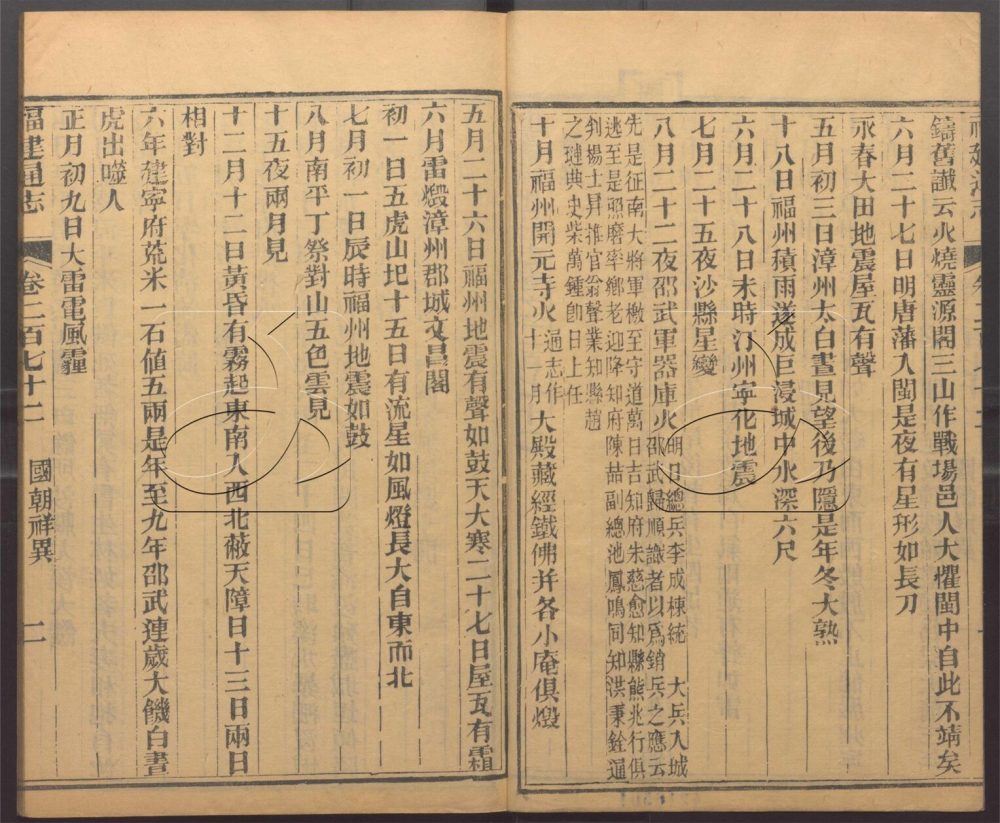 鑄舊讖云火燒靈源閣三山作戰場邑人大懼閩中自此不靖矣
六月二十七日明唐藩入閩是夜有星形如長刀
永春大田地震屋瓦有聲
五月初三日漳州太白晝見望後乃隱是年冬大熟
十八日福州積雨遂成巨浸城中水深六尺
六月二十八日未時汀州寧化地震
七月二十五夜沙縣星變
八月二十二夜邵武軍器庫火明日總兵李成棟統 大兵入城
邵武歸順識者以爲銷兵之應云
先是征南大將軍檄至守道萬日吉知府朱慈愈知縣熊兆行俱
逃至是照磨率鄉老迎降知府陳喆副總池鳳鳴同知洪秉銓通
判楊士昇推官翁聲業知縣趙
之璉典史柴萬鍾卽日上任
十月福州開元寺火通志作十一月大殿藏經鐵佛并各小庵俱燬
五月二十六日福州地震有聲如鼓天大寒二十七日屋瓦有霜
六月雷燬漳州郡城文昌閣
初一日五虎山圯十五日有流星如風燈長大自東而北
七月初一日辰時福州地震如鼓
八月南平丁祭對山五色雲見
十五夜兩月見
十二月十二日黃昏有霧起東南入西北蔽天障日十三日兩日
相對
六年建寧府荒米一石値五兩是年至九年邵武連歲大饑白晝
虎出噬人
正月初九日大雷電風霾
福建通志 卷二百七十二 國朝祥異 二